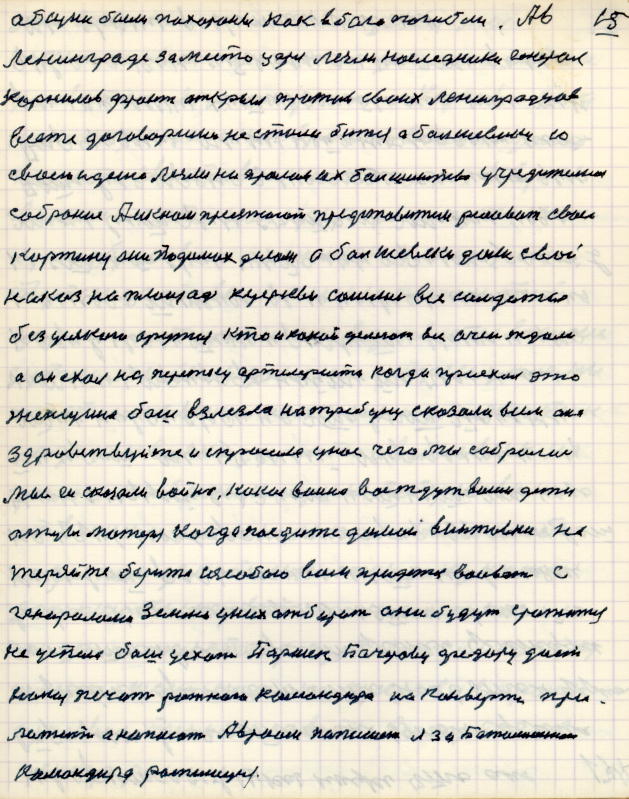 а бсуни были похороны как в бога погибли. Ав 15
Ленинграде за место царя легли наследники генерал
Корнилов фронт открыл против своих Ленинградцов
всете договорились не стали битця а большевики со
своей идено легли на большинство учредителния
собрание представители рисоват своею
картину они По домах делом а большевеки дали свой
наказ на площад церкви сошлис все солдатця
без оружия кто и какой делегат вы очен ждали
а он ехал на артилериста когда приехал это
женщина был взлезла на трибуну сказала всем она
здравствуйте и спросила унас чего мы собралис
мы ей сказали война, какая война вас ждут ваши дети
отцы матеря когда поедите домой винтовки не
теряйте берите ссобою вам придетця воеват с
генералами Землю у них отбират они будут
не успел был уехат Паршек Бачурову федору дают
печат ротного командира на конверти при-
а написат Авраам напишет я за Баталионного
командира роспишус.